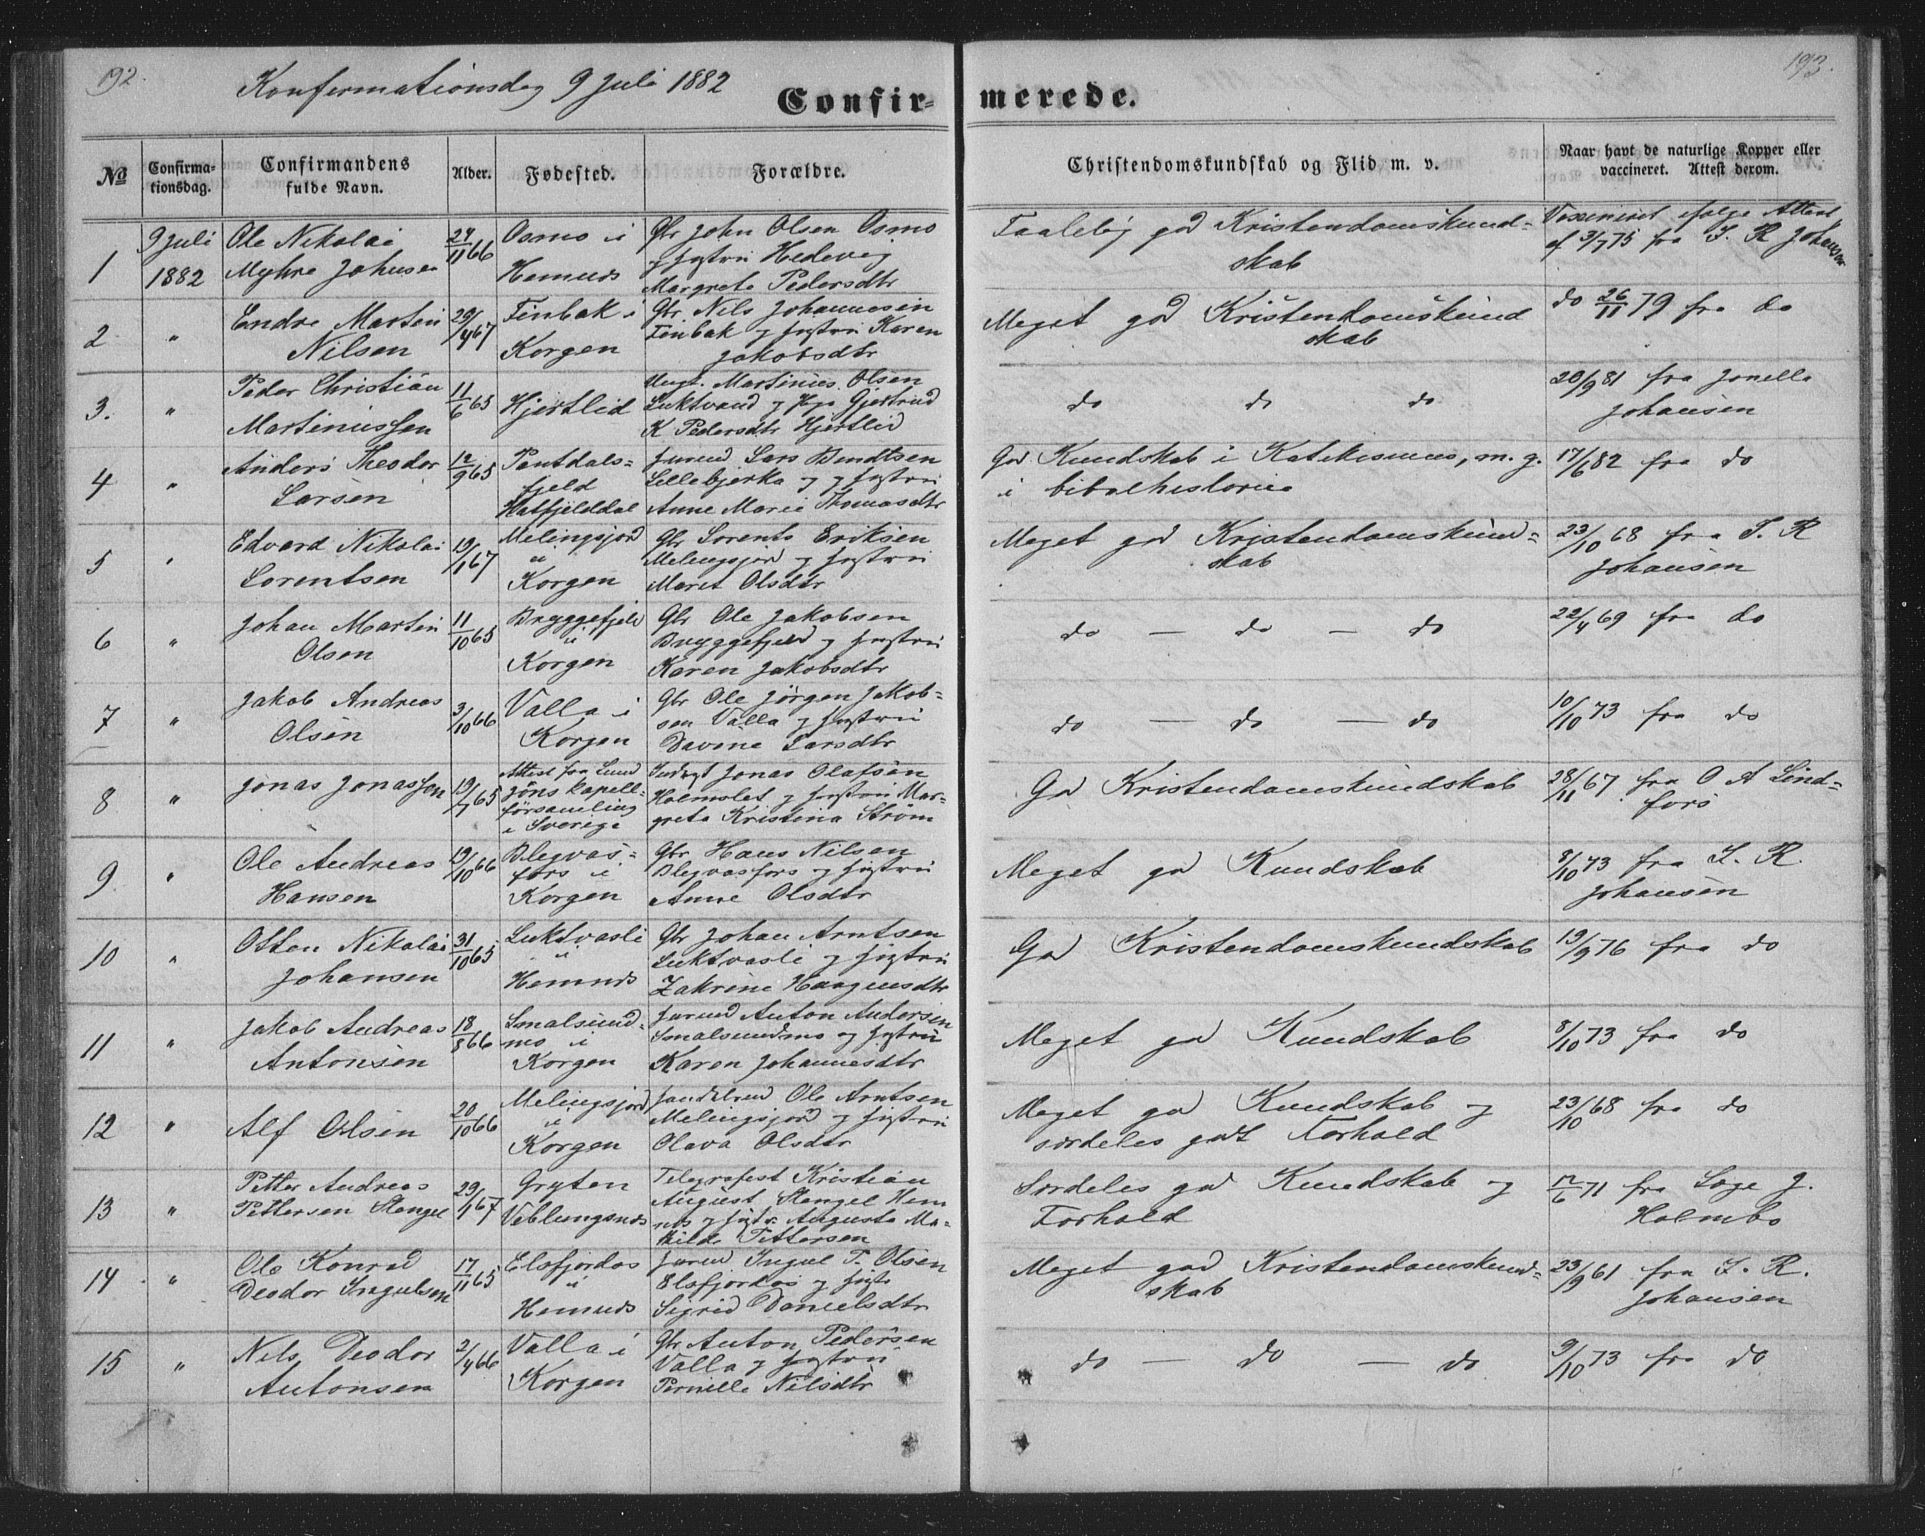 192.
193.
Konfermationsdag 9 Juli 1882
Confirmerede.
№ | Confirmationsdag. | Confirmandens fulde Navn. | Alder. | Fødested. | Forældre. | Christendomskundskab og Flid m. v. | Naar havt de naturlige Kopper eller vaccineret. Attest derom.
1 | 9 Juli 1882 | Ole Nikolai Myhre Johnsen | 24/11 66 | Osmo i Hemnes | Gbr John Olsen Osmo og hustru Hedevig Margrete Pedersdtr | Taalelig god Kristendomskundskab | Vaccineret ifølge Attest af 3/7 75 fra I. R Johansen
2 | " | Endre Martin Nilsen | 29/4 67 | Finbak i Korgen | Gbr. Nils Johannesen Finbak og hustru Karen Jakobsdtr | Meget god Kristendomskundskab | do 26/11 79 fra do
3. | " | Peder Christian Martinussen | 11/6 65 | Hjertlid | Ungk. Martinus Olsen Luktvand og Pige Gjertrud K Pedersdtr Hjertlid | do do do | 20/9 81 fra Jonella Johansen
4 | " | Anders Theodor Larsen | 12/9 65 | Pantdalsfjeld Hatfjelddal | Inderst Lars Bendtsen Lillebjerka og hustru Anne Marie Thomasdtr | God Kundskab i Katekismus, m. g. i bibelhistorie | 17/6 82 fra do
5 | " | Edvard Nikolai Lorentsen | 19/1 67 | Melingsjord i Korgen | Gbr Lorents Eriksen Melingsjord og hustru Maret Olsdtr | Meget god Kristendomskundskab | 23/10 68 fra I. R Johansen
6 | " | Johan Martin Olsen | 11/10 65 | Bryggefjeld i Korgen | Gbr Ole Jakobsen Bryggefjeld og hustru Karen Jakobsdtr | do — do — do | 22/4 69 fra do
7 | " | Jakob Andreas Olsen | 3/10 66 | Valla i Korgen | Gbr Ole Jørgen Jakobsen Valla og hustru Davine Larsdtr | do — do — do | 10/10 73 fra do
8 | " | Jonas Jonassen | 19/7 65 | Attest fra kapellförsamling i Sverige | Jonas Olafsen Holmslet og hustru Margreta Kristina Strøm | God Kristendomskundskab | 28/11 67 fra O A Lindfors
9 | " | Ole Andreas Hansen | 19/10 66 | Blegvasfors i Korgen | Gbr Hans Nilsen Blegvasfors og hustru Anne Olsdtr | Meget god Kundskab | 8/10 73 fra I. R. Johansen
10 | " | Otton Nikolai Johansen | 31/10 65 | Luktvasli i Hemnes | Gbr Johan Arntsen Luktvasli og hustru Zakrine Haagensdtr | God Kristendomskundskab | 19/9 76 fra do
11 | " | Jakob Andreas Antonsen | 18/8 66 | Smalsundmo i Korgen | Inderst Anton Andersen Smalsundmo og hustru Karen Johannesdtr | Meget god Kundskab | 8/10 73 fra do
12 | " | Alf Olsen | 20/10 66 | Melingsjord i Korgen | Ole Arntsen Melingsjord og hustru Olava Olsdtr | Meget god Kundskab og særdeles godt Forhold | 23/10 68 fra do
13 | " | Petter Andreas Pettersen Stangel | 29/1 67 | Gryten Veblungsnes | Telegrafest Kristian August Stangel Hemnes og hustru Augusta Matilde Pettersen | Særdeles god Kundskab og Forhold | 12/6 71 fra Læge J. Holmbo
14 | " | Ole Konrad Deodor Ingulsen | 17/11 65 | Elsfjordos i Hemnes | Inderst Ingul T. Olsen Elsfjordos og hustr Sigrid Danielsdtr | Meget god Kristendomskundskab | 23/9 61 fra I. R. Johansen
15 | " | Nils Deodor Antonsen | 2/4 66 | Valla i Korgen | Gbr Anton Pedersen Valla og hustru Pernille Nilsdtr | do — do — do | 9/10 73 fra do